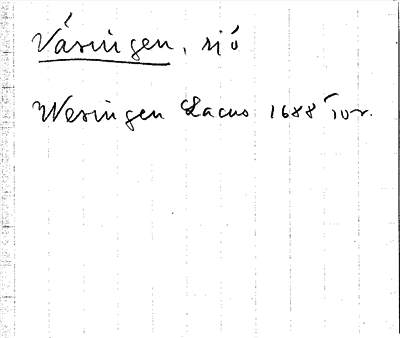 Väsingen, sjö
Wesingen Lacus 1688 Tor.